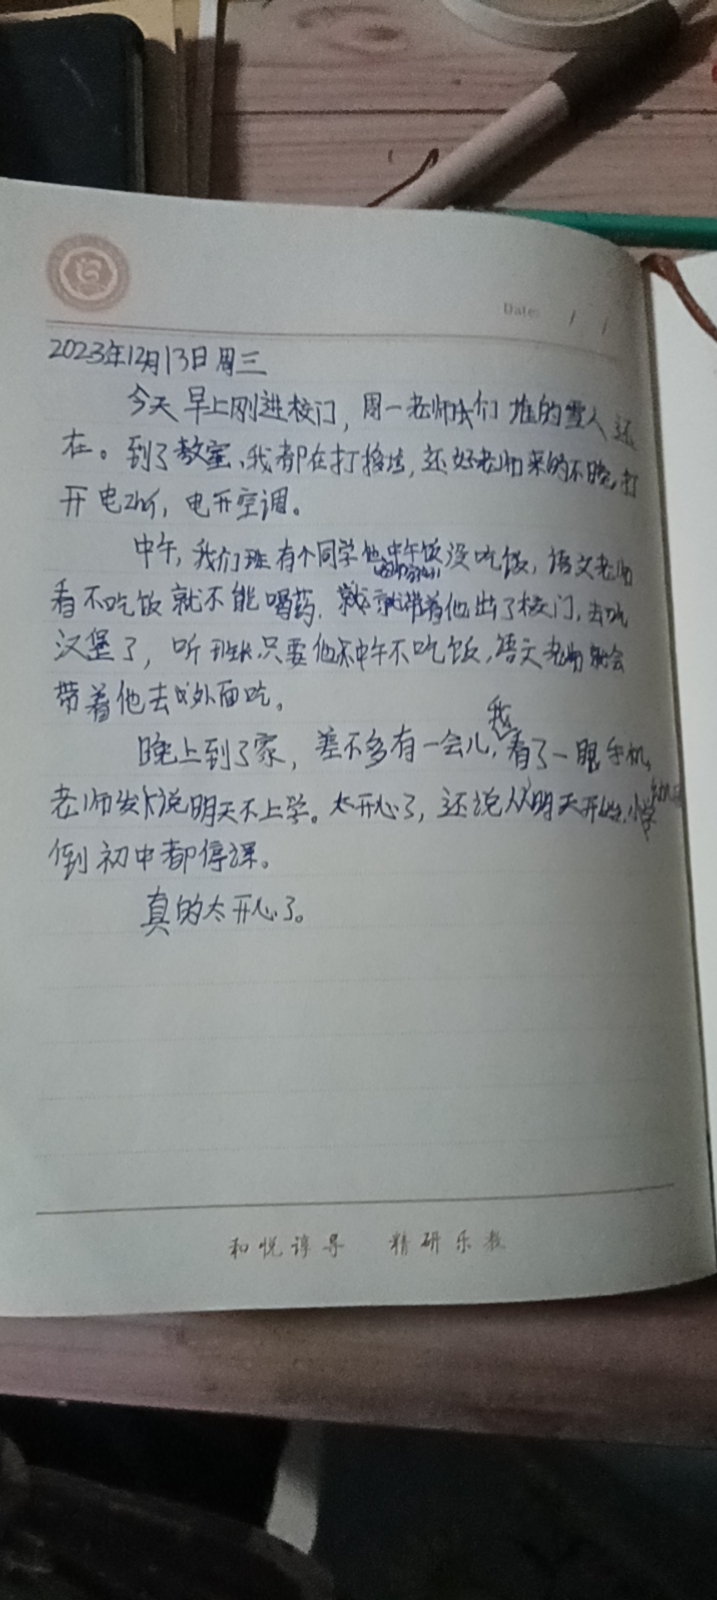 Date: / /
2023年12月13日 周三
今天早上刚进校门，周一老师我们堆的雪人还
在。到了教室、我都在打，还好老师来的不晚，打
开电zhá，电开空调。
中午，我们班有个同学他中午饭没吃饭，语文老师
看不吃饭就不能喝药，就带着他出了校门，去吃
汉堡了，听班长只要他中午不吃饭，语文老师就会
带着他去外面吃。
晚上到了家，差不多有一会儿，我看了一眼手机，
老师发说明天不上学。太开心了，还说从明天开始，小学
倒初中都停课。
真的太开心了。
和悦谆导 精研乐教